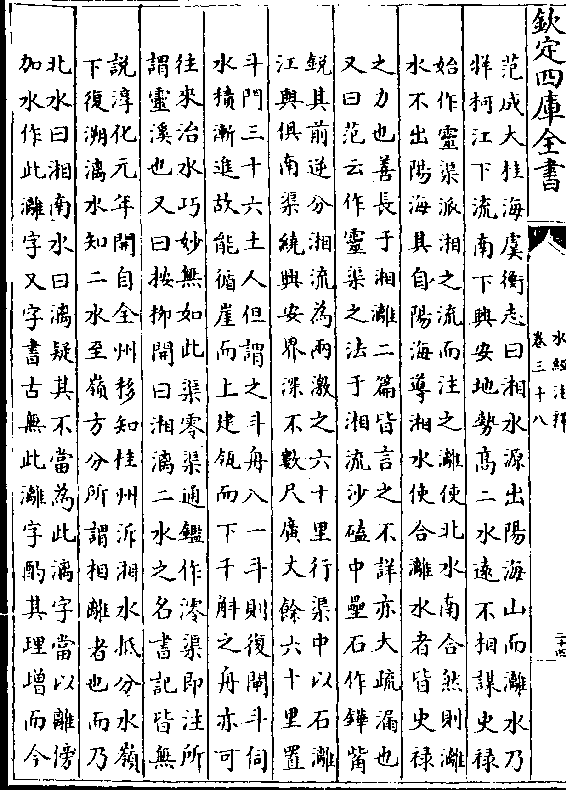 欽定四庫全書
水經注釋
卷三十八
二十四
范成大桂海虞衡志曰相水源出陽海山而灕水乃
牂柯江下流南下興安地勢高二水遠不相謀史禄
始作靈渠派湘之流而注之灕使北水南合然則灕
水不出陽海其自陽海導湘水使合灕水者皆史禄
之力也善長于湘灕二篇皆言之不詳亦大疏漏也
又曰范云作靈渠之法于湘流沙磕中壘石作鏵觜
銳其前逆分湘流為兩激之六十里行渠中以石灕
江與俱南渠繞興安界深不數尺廣丈餘六十里置
斗門三十六土人但謂之斗舟入一斗則復閘斗伺
水積漸進故能循崖而上建瓴而下千斛之舟亦可
往來治水巧妙無如此渠零渠通鑑作澪渠即注所
謂靈溪也又曰按栁開曰湘漓二水之名書記皆無
説淳化元年開自全州移知桂州泝湘水抵分水嶺
下復溯漓水知二水至嶺方分所謂相離者也而乃
北水曰湘南水曰漓疑其不當為此漓字當以離傍
加水作此灕字又字書古無此灕字酌其理增而今